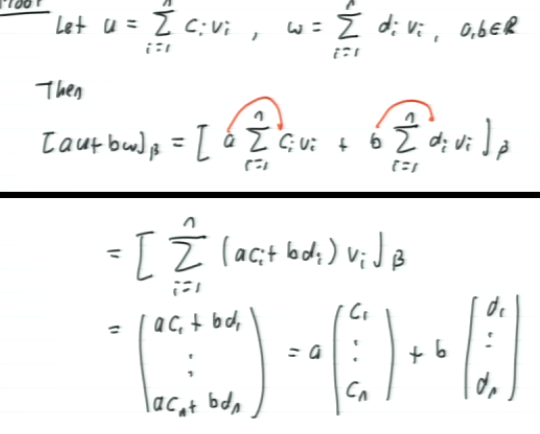 Proof
Let u = ∑_{i=1}^{n} c_i v_i , w = ∑_{i=1}^{n} d_i v_i , a,b∈ℝ
Then
[au+bw]_β = [ a ∑_{i=1}^{n} c_i v_i + b ∑_{i=1}^{n} d_i v_i ]_β
= [ ∑_{i=1}^{n} (ac_i + bd_i) v_i ]_β
= ( ac_1 + bd_1 ⋮ ac_n + bd_n ) = a ( c_1 ⋮ c_n ) + b [ d_1 ⋮ d_n ]